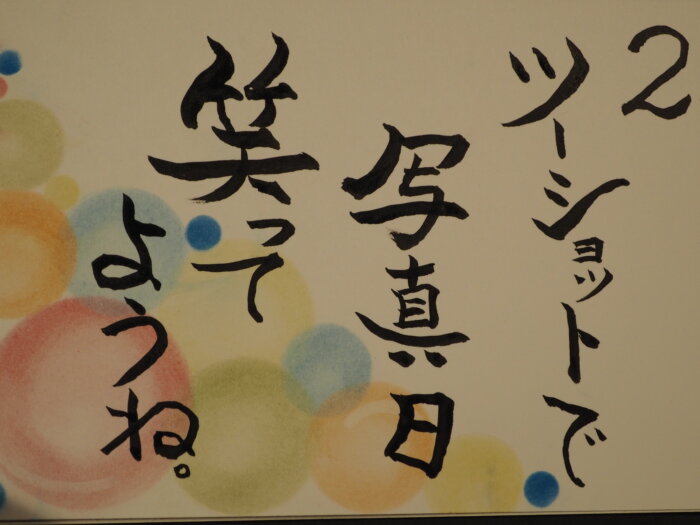 2
ツーショットで
写真日
笑って
ようね。